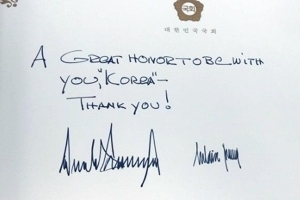 국회
대한민국국회
A GREAT HONOR TO BE WITH
YOU, "KOREA" –
THANK YOU!